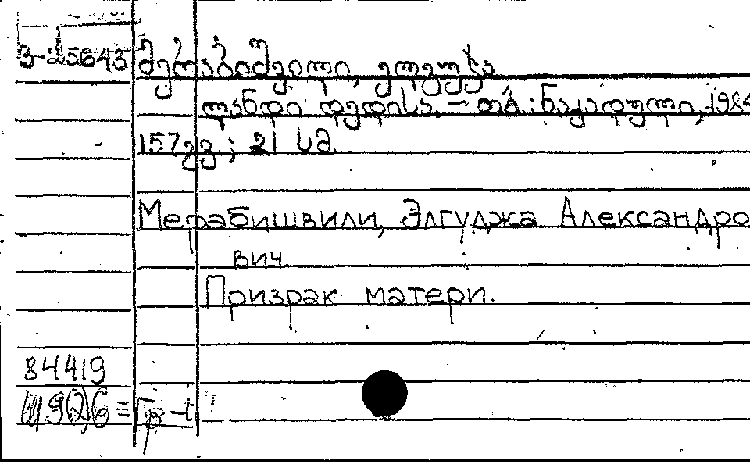 3-25643 მერაბიშვილი, ელგუჯა
ლანდი დედისა. – თბ.: ნაკადული, 1984
157გვ; 21 სმ
Мерабишвили, Элгуджа Александро
вич
Призрак матери.
84419